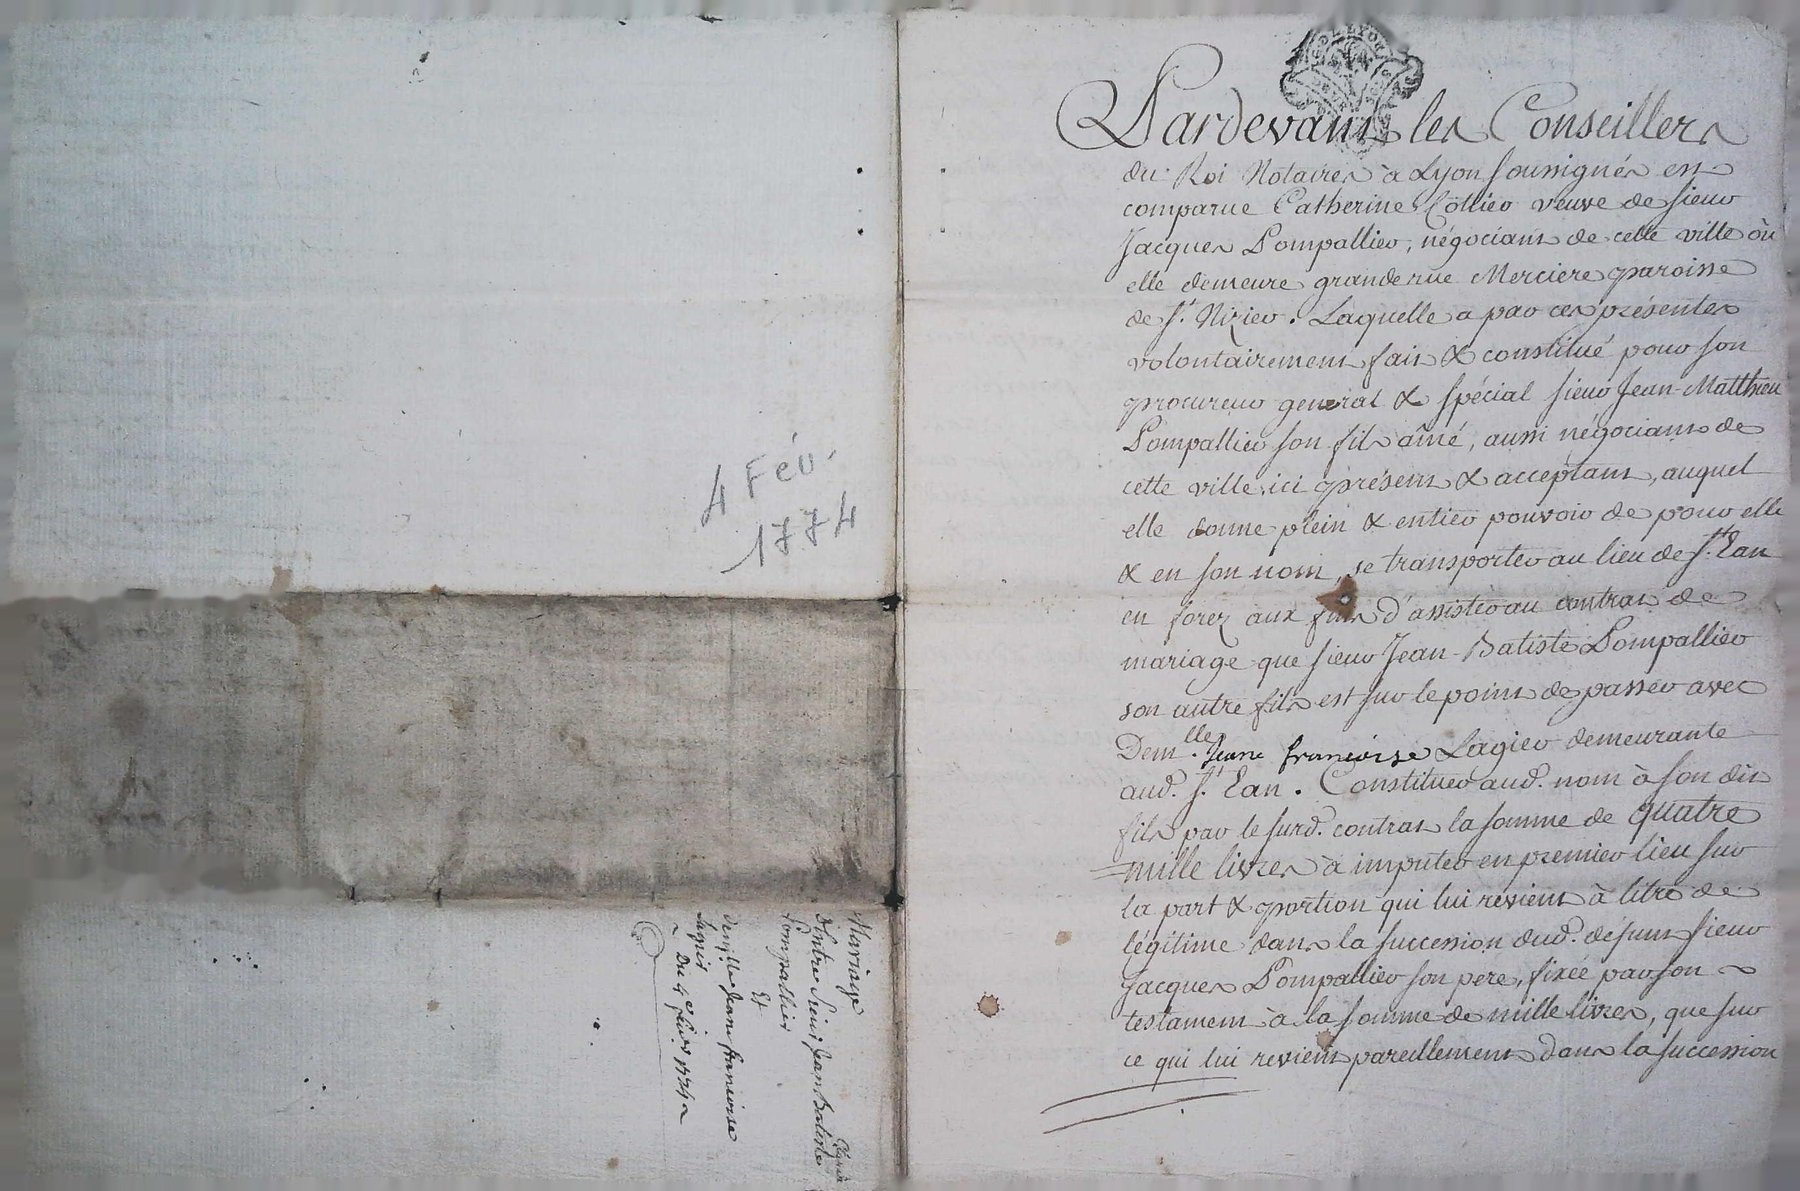 4 Fév.
1774
Mariage
D'Entre Sieur Jean Batiste
Pompallier
Et
Demlle Jeanne francoise
Lagier
Du 4e février 1774
Pardevant les Conseillers
du Roi Notaires à Lyon soussignés est
comparue Catherine Cottier veuve de sieur
Jacques Pompallier, négociant de cette ville où
elle demeure grande rue Merciere paroisse
de St. Nizier. Laquelle a par ces présentes
volontairement fait & constitué pour son
procureur general & spécial sieur Jean-Matthieu
Pompallier son fils aîné, aussi négociant de
cette ville, ici présent & acceptant, auquel
elle donne plein & entier pouvoir de pour elle
& en son nom, se transporter au lieu de St. Ean
en forez aux fins d'assister au contrat de
mariage que sieur Jean-Batiste Pompallier
son autre fils est sur le point de passer avec
Demlle. Jeane francoise Lagier demeurante
aud. St. Ean. Constituer aud. nom à son dit
fils par le surd. contrat la somme de quatre
mille livres à imputer en premier lieu sur
la part & portion qui lui revient à titre de
légitime dans la succession dud. défunt sieur
Jacques Pompallier son pere, fixée par son
testament à la somme de mille livres, que sur
ce qui lui revient pareillement dans la succession